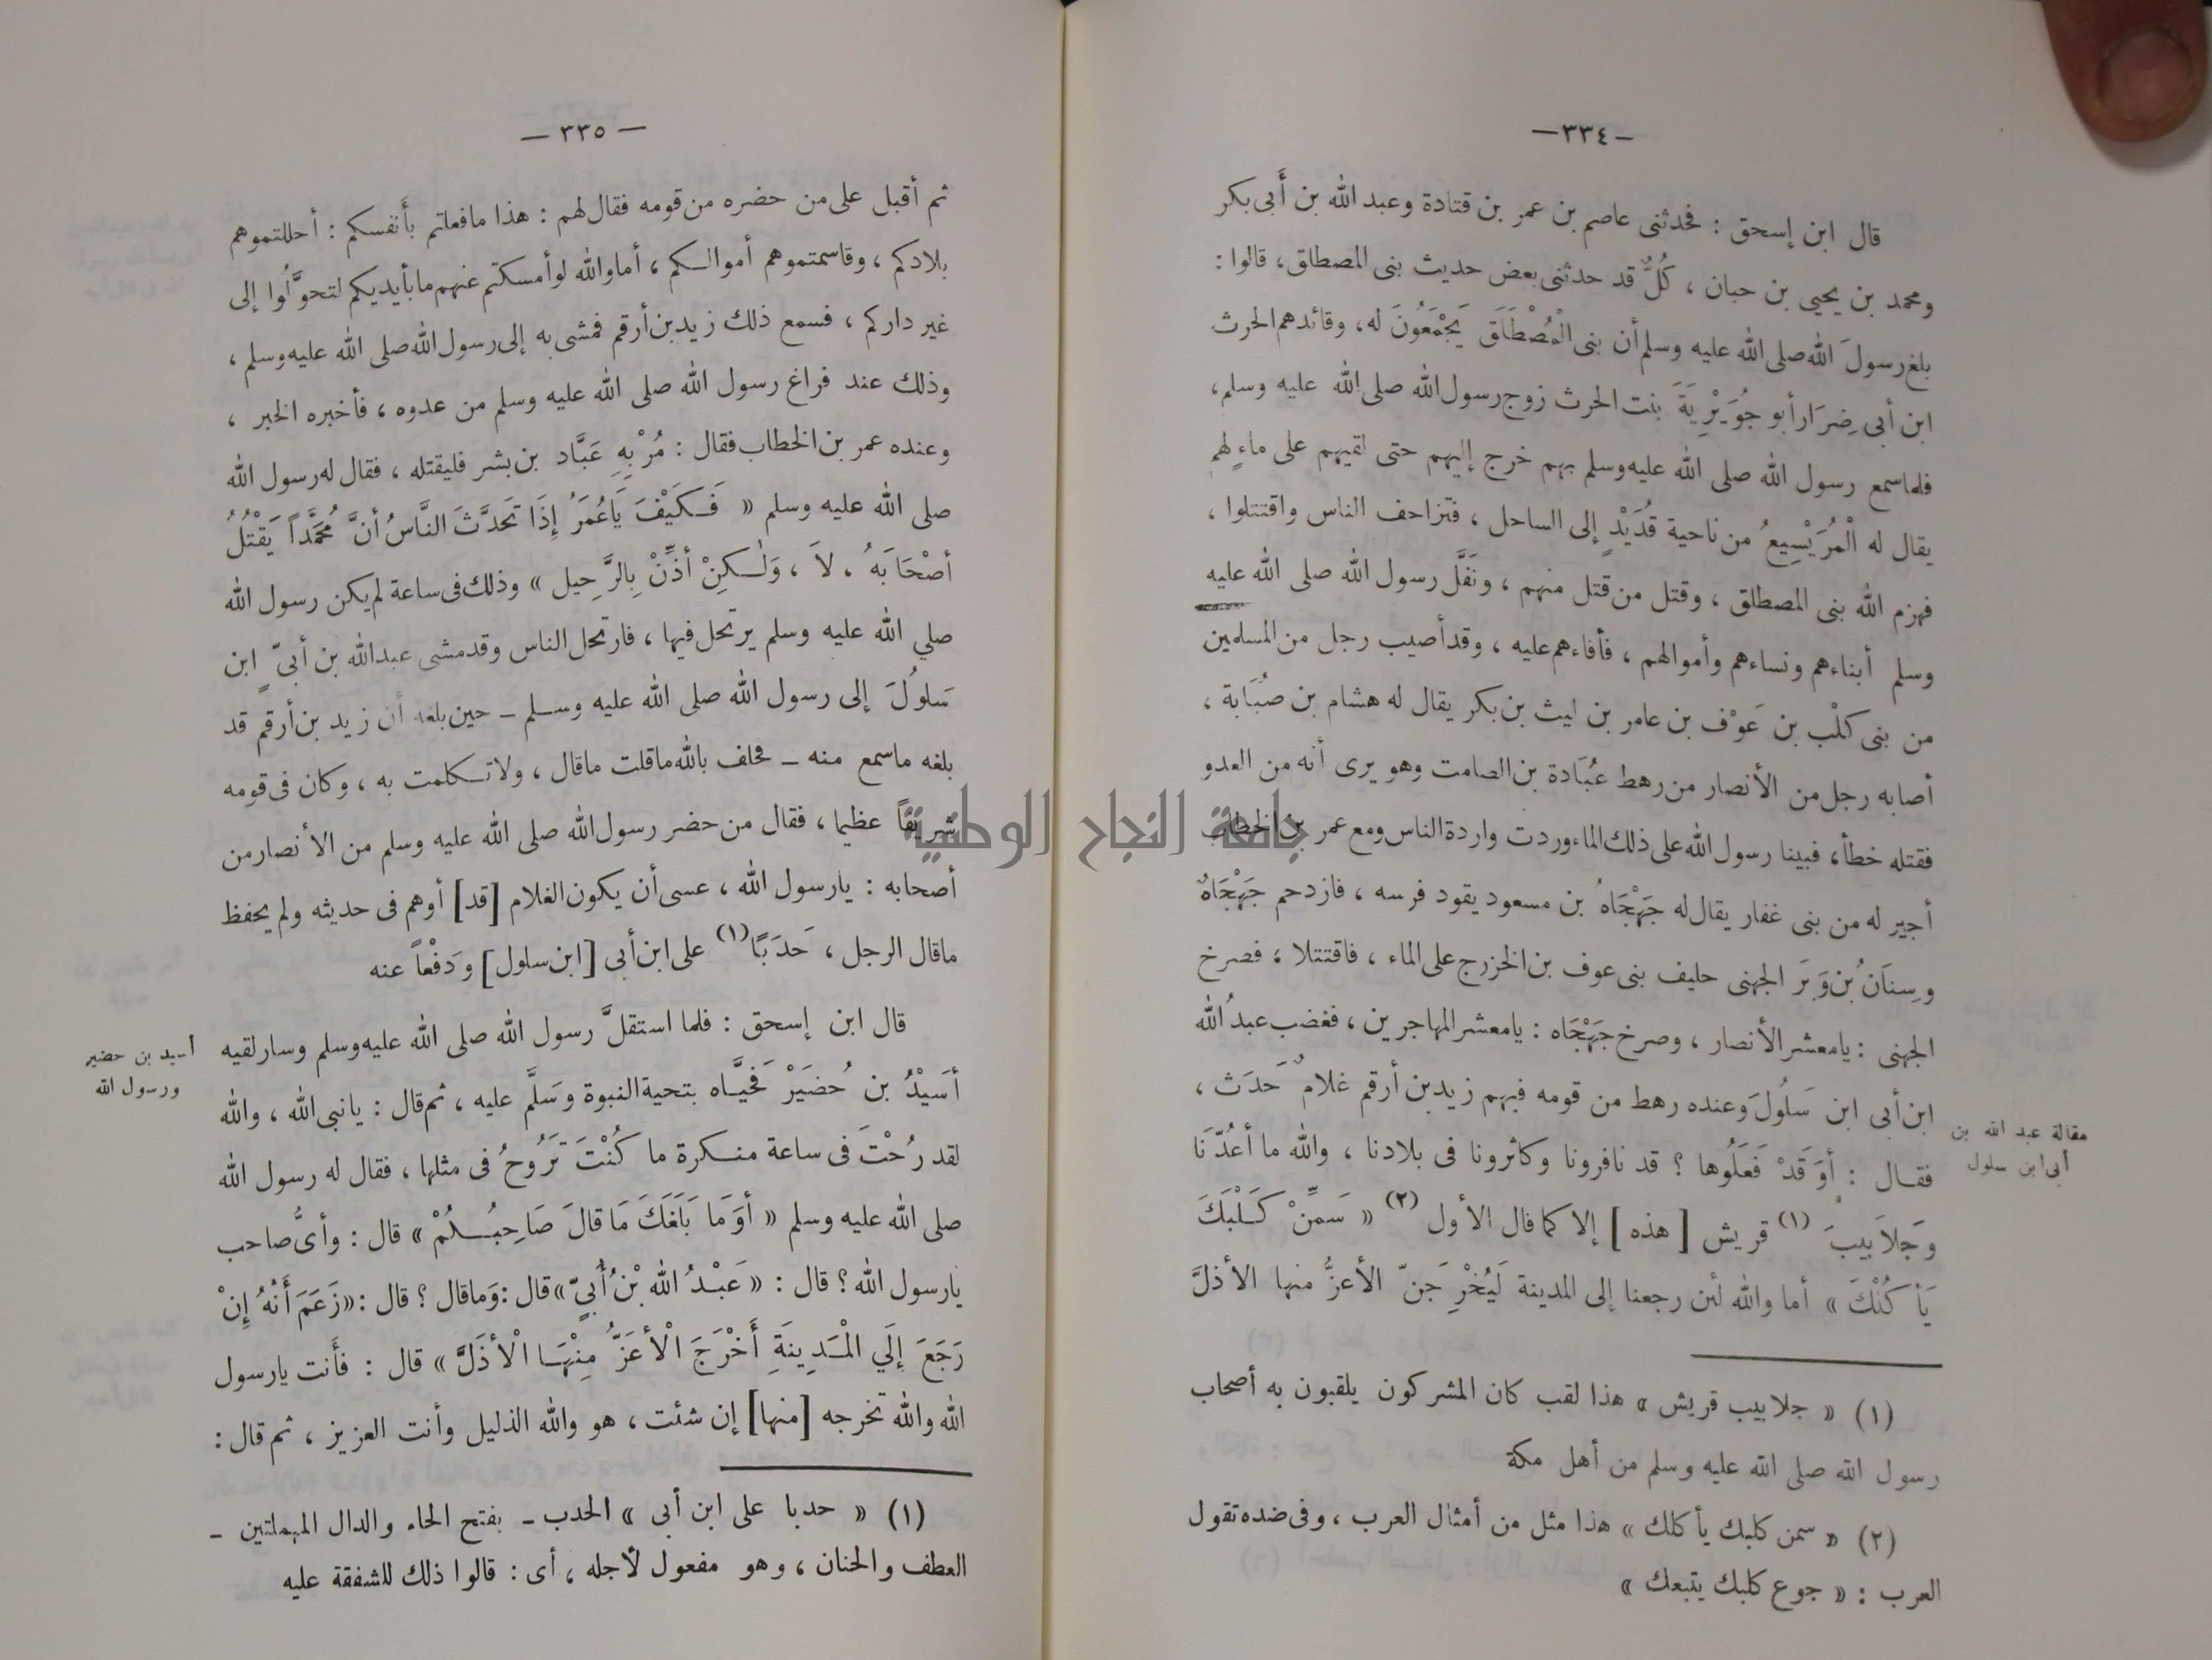 —٣٣٤—
قال ابن إسحق : فحدثنى عاصم بن عمر بن قتادة وعبد الله بن أَبى بكر
ومحمد بن يحيى بن حبان ، كُلٌّ قد حدثنى بعض حديث بنى المصطلق، قالوا :
بلغ رسولَ الله صلى الله عليه وسلم أن بنى الْمُصْطَلَق يَجْمَعُونَ له، وقائدهم الحرث
ابن أبى ضِرَار أبو جُوَيْرِيَةَ بنت الحرث زوج رسول الله صلى الله عليه وسلم ،
فلما سمع رسول الله صلى الله عليه وسلم بهم خرج إليهم حتى لقيهم على ماءٍ لهم
يقال له الْمُرَيْسِيعُ من ناحية قُدَيْدٍ إلى الساحل ، فتزاحف الناس واقتتلوا ،
فهزم الله بنى المصطلق ، وقتل من قتل منهم ، ونَفَّل رسول الله صلى الله عليه
وسلم أبناءهم ونساءهم وأموالهم ، فأفاءهم عليه ، وقد أصيب رجل من المسلمين
من بنى كلْب بن عَوْف بن عامر بن ليث بن بكر يقال له هشام بن صُبَابة ،
أصابه رجل من الأنصار من رهط عُبَادة بن الصامت وهو يرى أنه من العدو
فقتله خطأ، فبينا رسول الله على ذلك الماء وردت واردة الناس ومع عمر بن الخطاب
أجير له من بنى غفار يقال له جَهْجَاهُ بن مسعود يقود فرسه ، فازدحم جَهْجَاهٌ
وسِنَانُ بن وَبَرَ الجهنى حليف بنى عوف بن الخزرج على الماء ، فاقتتلا ، فصرخ
الجهنى : يا معشر الأنصار ، وصرخ جَهْجَاه : يا معشر المهاجرين ، فغضب عبدُ الله
ابن أبى ابن سَلُولَ وعنده رهط من قومه فيهم زيد بن أرقم غلامٌ حَدَث ،
فقال : أوَقَدْ فَعَلُوها ؟ قد نافرونا وكاثرونا فى بلادنا ، والله ما أعُدُّنَا
وَجَلاَبيبَ (١) قريش [ هذه ] إلا كما قال الأول (٢) « سَمِّنْ كَلْبَكَ
يَأكُلْكَ » أما والله لئن رجعنا إلى المدينة لَيُخْرِجَنّ الأعزُّ منها الأذلَّ
مقالة عبد الله بن
أبى ابن سلول
(١) « جلابيب قريش » هذا لقب كان المشركون يلقبون به أصحاب
رسول الله صلى الله عليه وسلم من أهل مكة
(٢) « سمن كلبك يأكلك » هذا مثل من أمثال العرب ، وفى ضده تقول
العرب : « جوع كلبك يتبعك »
— ٣٣٥ —
ثم أقبل على من حضره من قومه فقال لهم : هذا ما فعلتم بأَنفسكم : أحللتموهم
بلادكم ، وقاسمتموهم أموالكم ، أما والله لو أمسكتم عنهم ما بأيديكم لتحوَّلُوا إلى
غير داركم ، فسمع ذلك زيد بن أرقم فمشى به إلى رسول الله صلى الله عليه وسلم ،
وذلك عند فراغ رسول الله صلى الله عليه وسلم من عدوه ، فأخبره الخبر ،
وعنده عمر بن الخطاب فقال : مُرْ بِهِ عَبَّاد بن بشر فليقتله ، فقال له رسول الله
صلى الله عليه وسلم « فَكَيْفَ يَاعُمَرُ إِذَا تَحَدَّثَ النَّاسُ أنَّ مُحَمَّداً يَقْتُلُ
أصْحَابَهُ ، لاَ ، وَلٰكِنْ أذِّنْ بِالرَّحِيل » وذلك فى ساعة لم يكن رسول الله
صلي الله عليه وسلم يرتحل فيها ، فارتحل الناس وقد مشى عبد الله بن أبىّ ابن
سَلولَ إلى رسول الله صلى الله عليه وسلم – حين بلغه أن زيد بن أرقم قد
بلغه ما سمع منه – فحلف بالله ما قلت ما قال ، ولا تكلمت به ، وكان فى قومه
شريفاً عظيما ، فقال من حضر رسول الله صلى الله عليه وسلم من الأنصار من
أصحابه : يا رسول الله ، عسى أن يكون الغلام [قد] أوهم فى حديثه ولم يحفظ
ما قال الرجل ، حَدَبًا (١) على ابن أبى [ابن سلول] ودَفْعاً عنه
قال ابن إسحق : فلما استقلَّ رسول الله صلى الله عليه وسلم وسار لقيه
أسَيْدُ بن حُضَيْرْ فَحيَّاه بتحية النبوة وسَلَّم عليه ، ثم قال : يا نبى الله ، والله
لقد رُحْتَ فى ساعة منكرة ما كُنْتَ تَرُوحُ فى مثلها ، فقال له رسول الله
صلى الله عليه وسلم « أوَمَا بَلَغَكَ مَا قالَ صَاحِبُكُمْ » قال : وأىُّ صاحب
يا رسول الله ؟ قال : « عَبْدُ الله بْنُ أُبىّ » قال : وَما قال ؟ قال : « زَعَمَ أَنَّهُ إِنْ
رَجَعَ إِلَي الْمَدِينَةِ أَخْرَجَ الْأعَزُّ مِنْهَا الْأذَلَّ » قال : فأَنت يا رسول
الله والله تخرجه [منها] إن شئت ، هو والله الذليل وأنت العزيز ، ثم قال :
أسيد بن حضير
ورسول الله
(١) « حدبا على ابن أبى » الحدب – بفتح الحاء والدال المهملتين –
العطف والحنان ، وهو مفعول لأجله ، أى : قالوا ذلك للشفقة عليه
جامعة النجاح الوطنية